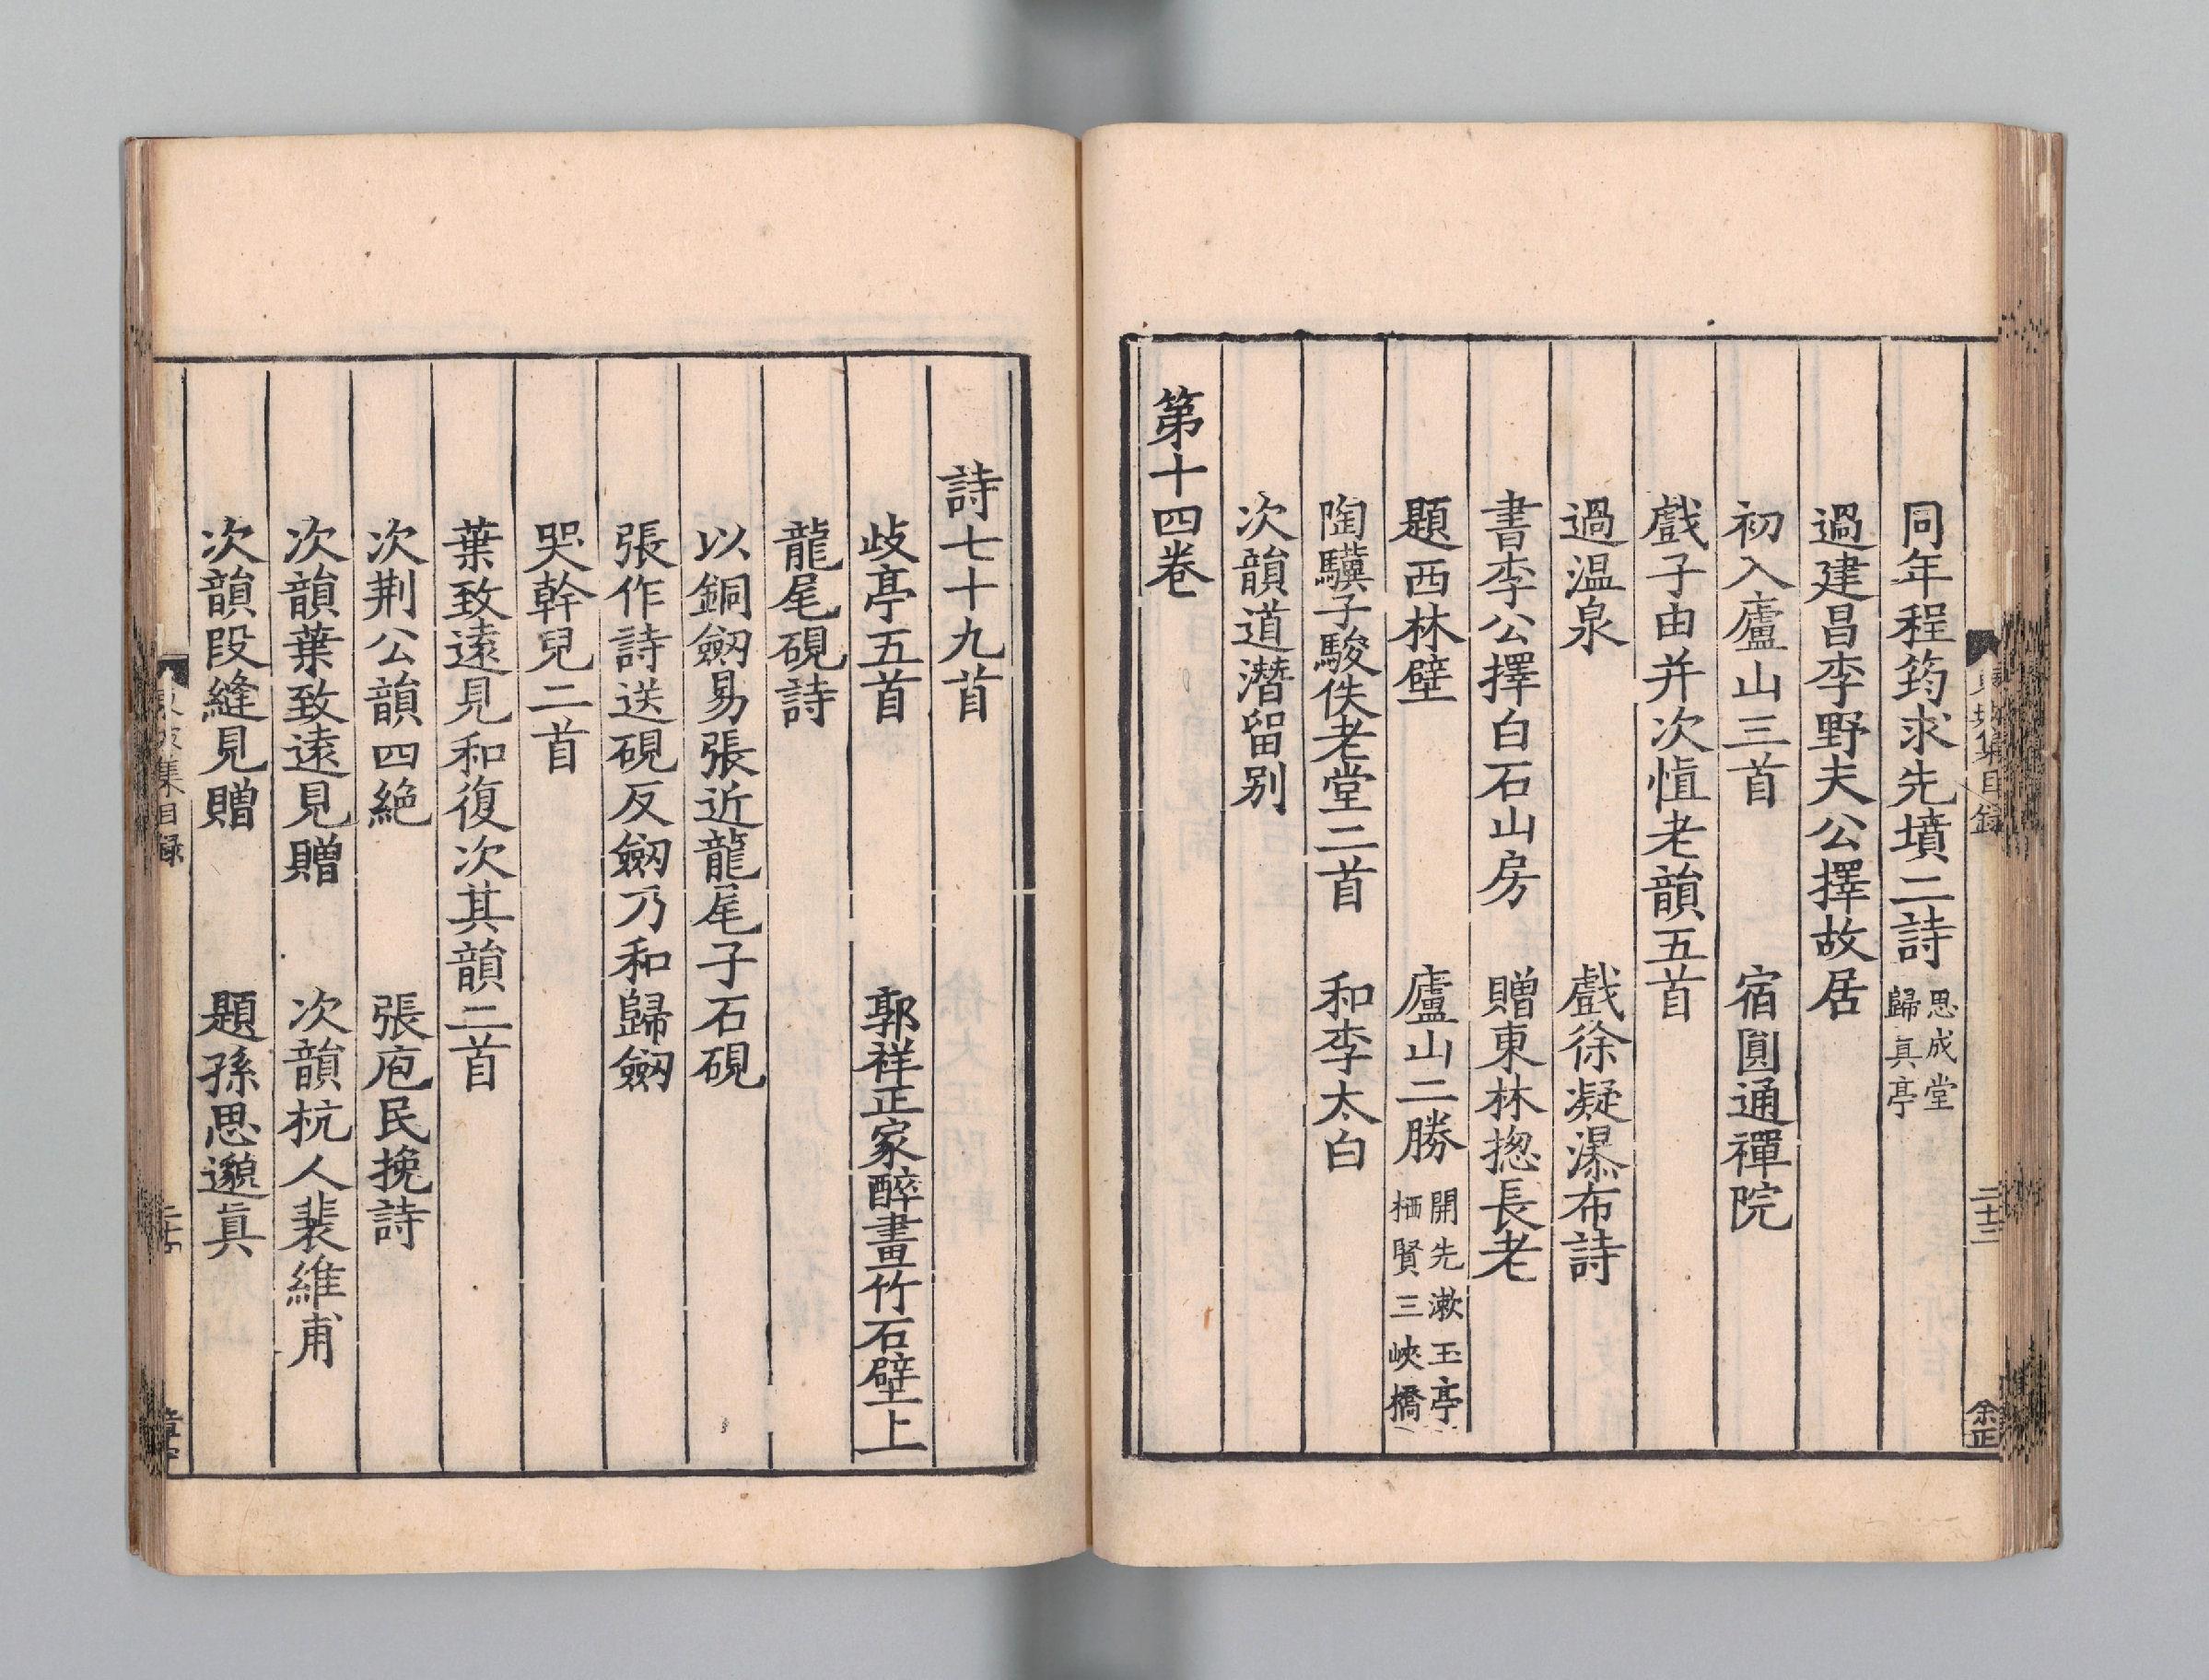 同年程筠求先墳二詩 思成堂 歸真亭
過建昌李野夫公擇故居
初入廬山三首 宿圓通禪院
戲子由并次慎老韻五首
過温泉 戲徐凝瀑布詩
書李公擇白石山房 贈東林揔長老
題西林壁 廬山二勝 開先漱玉亭 栖賢三峽橋
陶驥子駿佚老堂二首 和李太白
次韻道潛留别
第十四卷
詩七十九首
歧亭五首 郭祥正家醉畫竹石壁上
龍尾硯詩
以銅劒易張近龍尾子石硯
張作詩送硯反劒乃和歸劒
哭幹兒二首
葉致遠見和復次其韻二首
次荆公韻四絶 張庖民挽詩
次韻葉致遠見贈 次韻杭人裴維甫
次韻段縫見贈 題孫思邈真